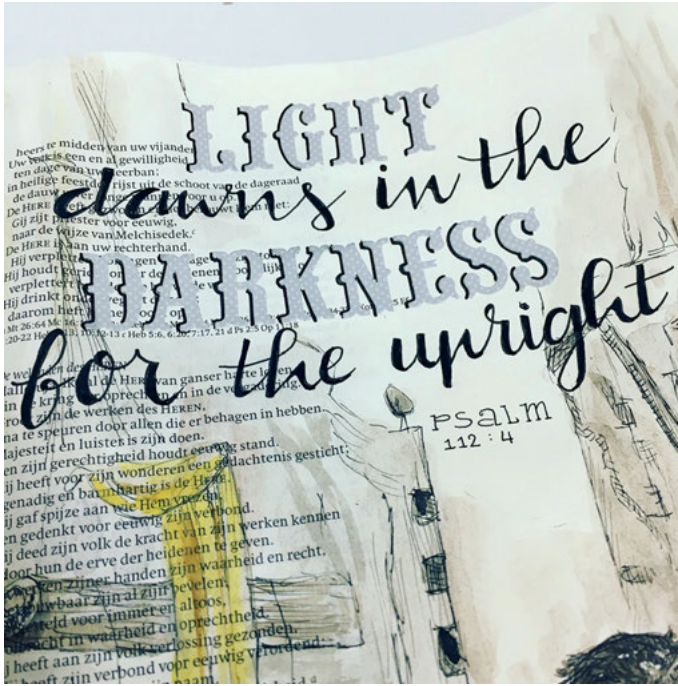 LIGHT
dawns in the
DARKNESS
for the upright
PSALM
112:4
heers te midden van uw vijanden
Uw volk is een en al gewilligheid
ten dage van uw heerban;
in heilige feestdos rijst uit de schoot van de dageraad
de dauw
De HERE
Gij zijt priester voor eeuwig,
naar de wijze van Melchisedek.
De HERE is aan uw rechterhand.
Hij verplet
Hij houdt
verplettert
Hij drinkt
daarom heft
van ganser harte
in de kring oprechten en in de
zijn de werken des HEREN,
na te speuren door allen die er behagen in hebben.
majesteit en luister is zijn doen.
en zijn gerechtigheid houdt eeuwig stand.
ij heeft voor zijn wonderen een gedachtenis gesticht;
genadig en barmhartig is de HERE.
ij gaf spijze aan wie Hem vrezen,
n gedenkt voor eeuwig zijn verbond.
ij deed zijn volk de kracht van zijn werken kennen
door hun de erve der heidenen te geven.
zijner handen zijn waarheid en recht,
wbaar zijn al zijn bevelen,
voor immer en altoos,
in waarheid en oprechtheid.
j heeft aan zijn volk verlossing gezonden,
heeft zijn verbond voor eeuwig verordend;